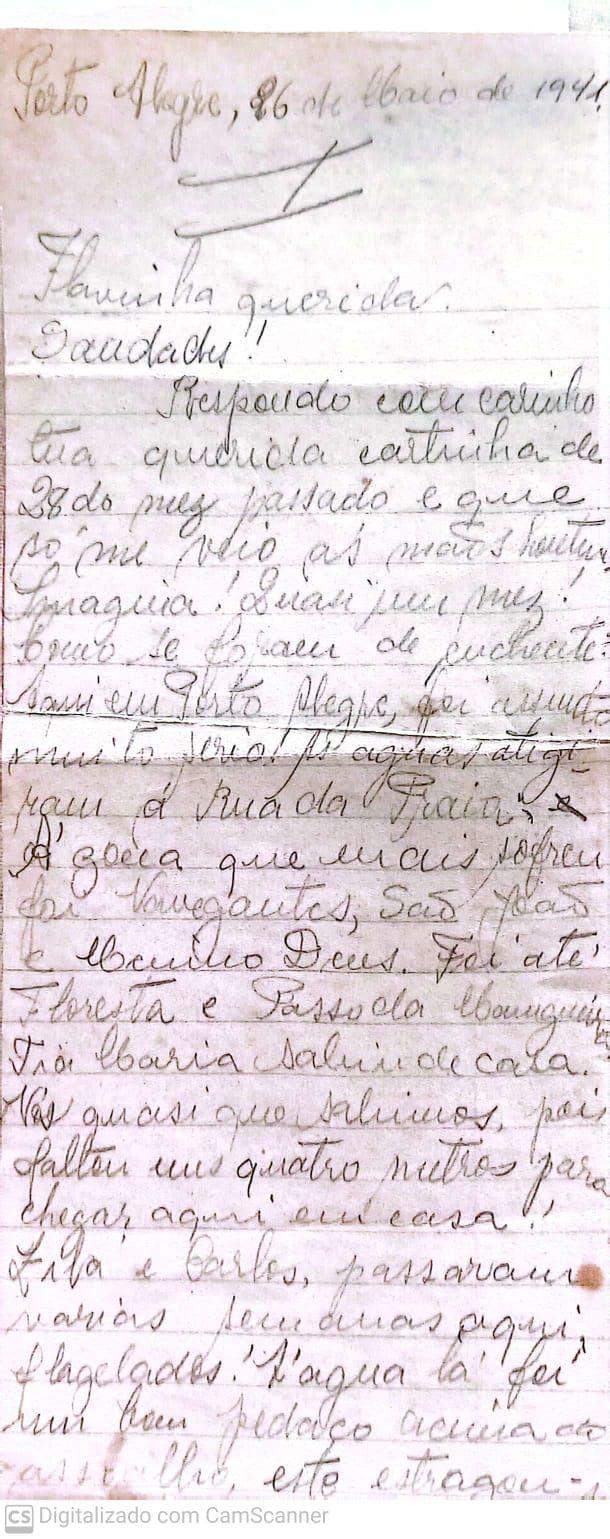 Porto Alegre, 26 de Maio de 1941.
Flavinha querida.
Saudades!
Respondo com carinho
tua querida cartinha de
28 do mez passado e que
só me veio as mãos hontem,
Imagina! Quasi um mez!
Como se foram de enchente?
Aqui em Porto Alegre, foi assunto
muito serio. As aguas atigi-
ram á Rua da Praia;
A zona que mais sofreu
foi Navegantes, São João
e Menino Deus. Foi até
Floresta e Passo da Mangueira
Tia Maria sahiu de casa.
Nós quasi que sahimos, pois
faltou uns quatro metros para
chegar aqui em casa!
Zilá e Carlos, passaram
varias semanas aqui,
flagelados! A agua lá foi
um bom pedaço acima do
assoalho, este estragou-
CS Digitalizado com CamScanner